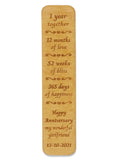 1 year
together
12 months
of love
52 weeks
of bliss
365 days
of happiness
Happy
Anniversary
my wonderful
girlfriend
12-10-2021